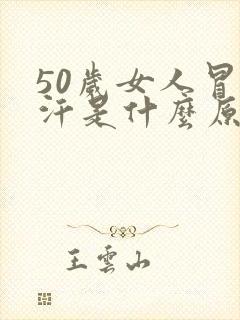 50歲女人冒
汗是什麼原
王雲山